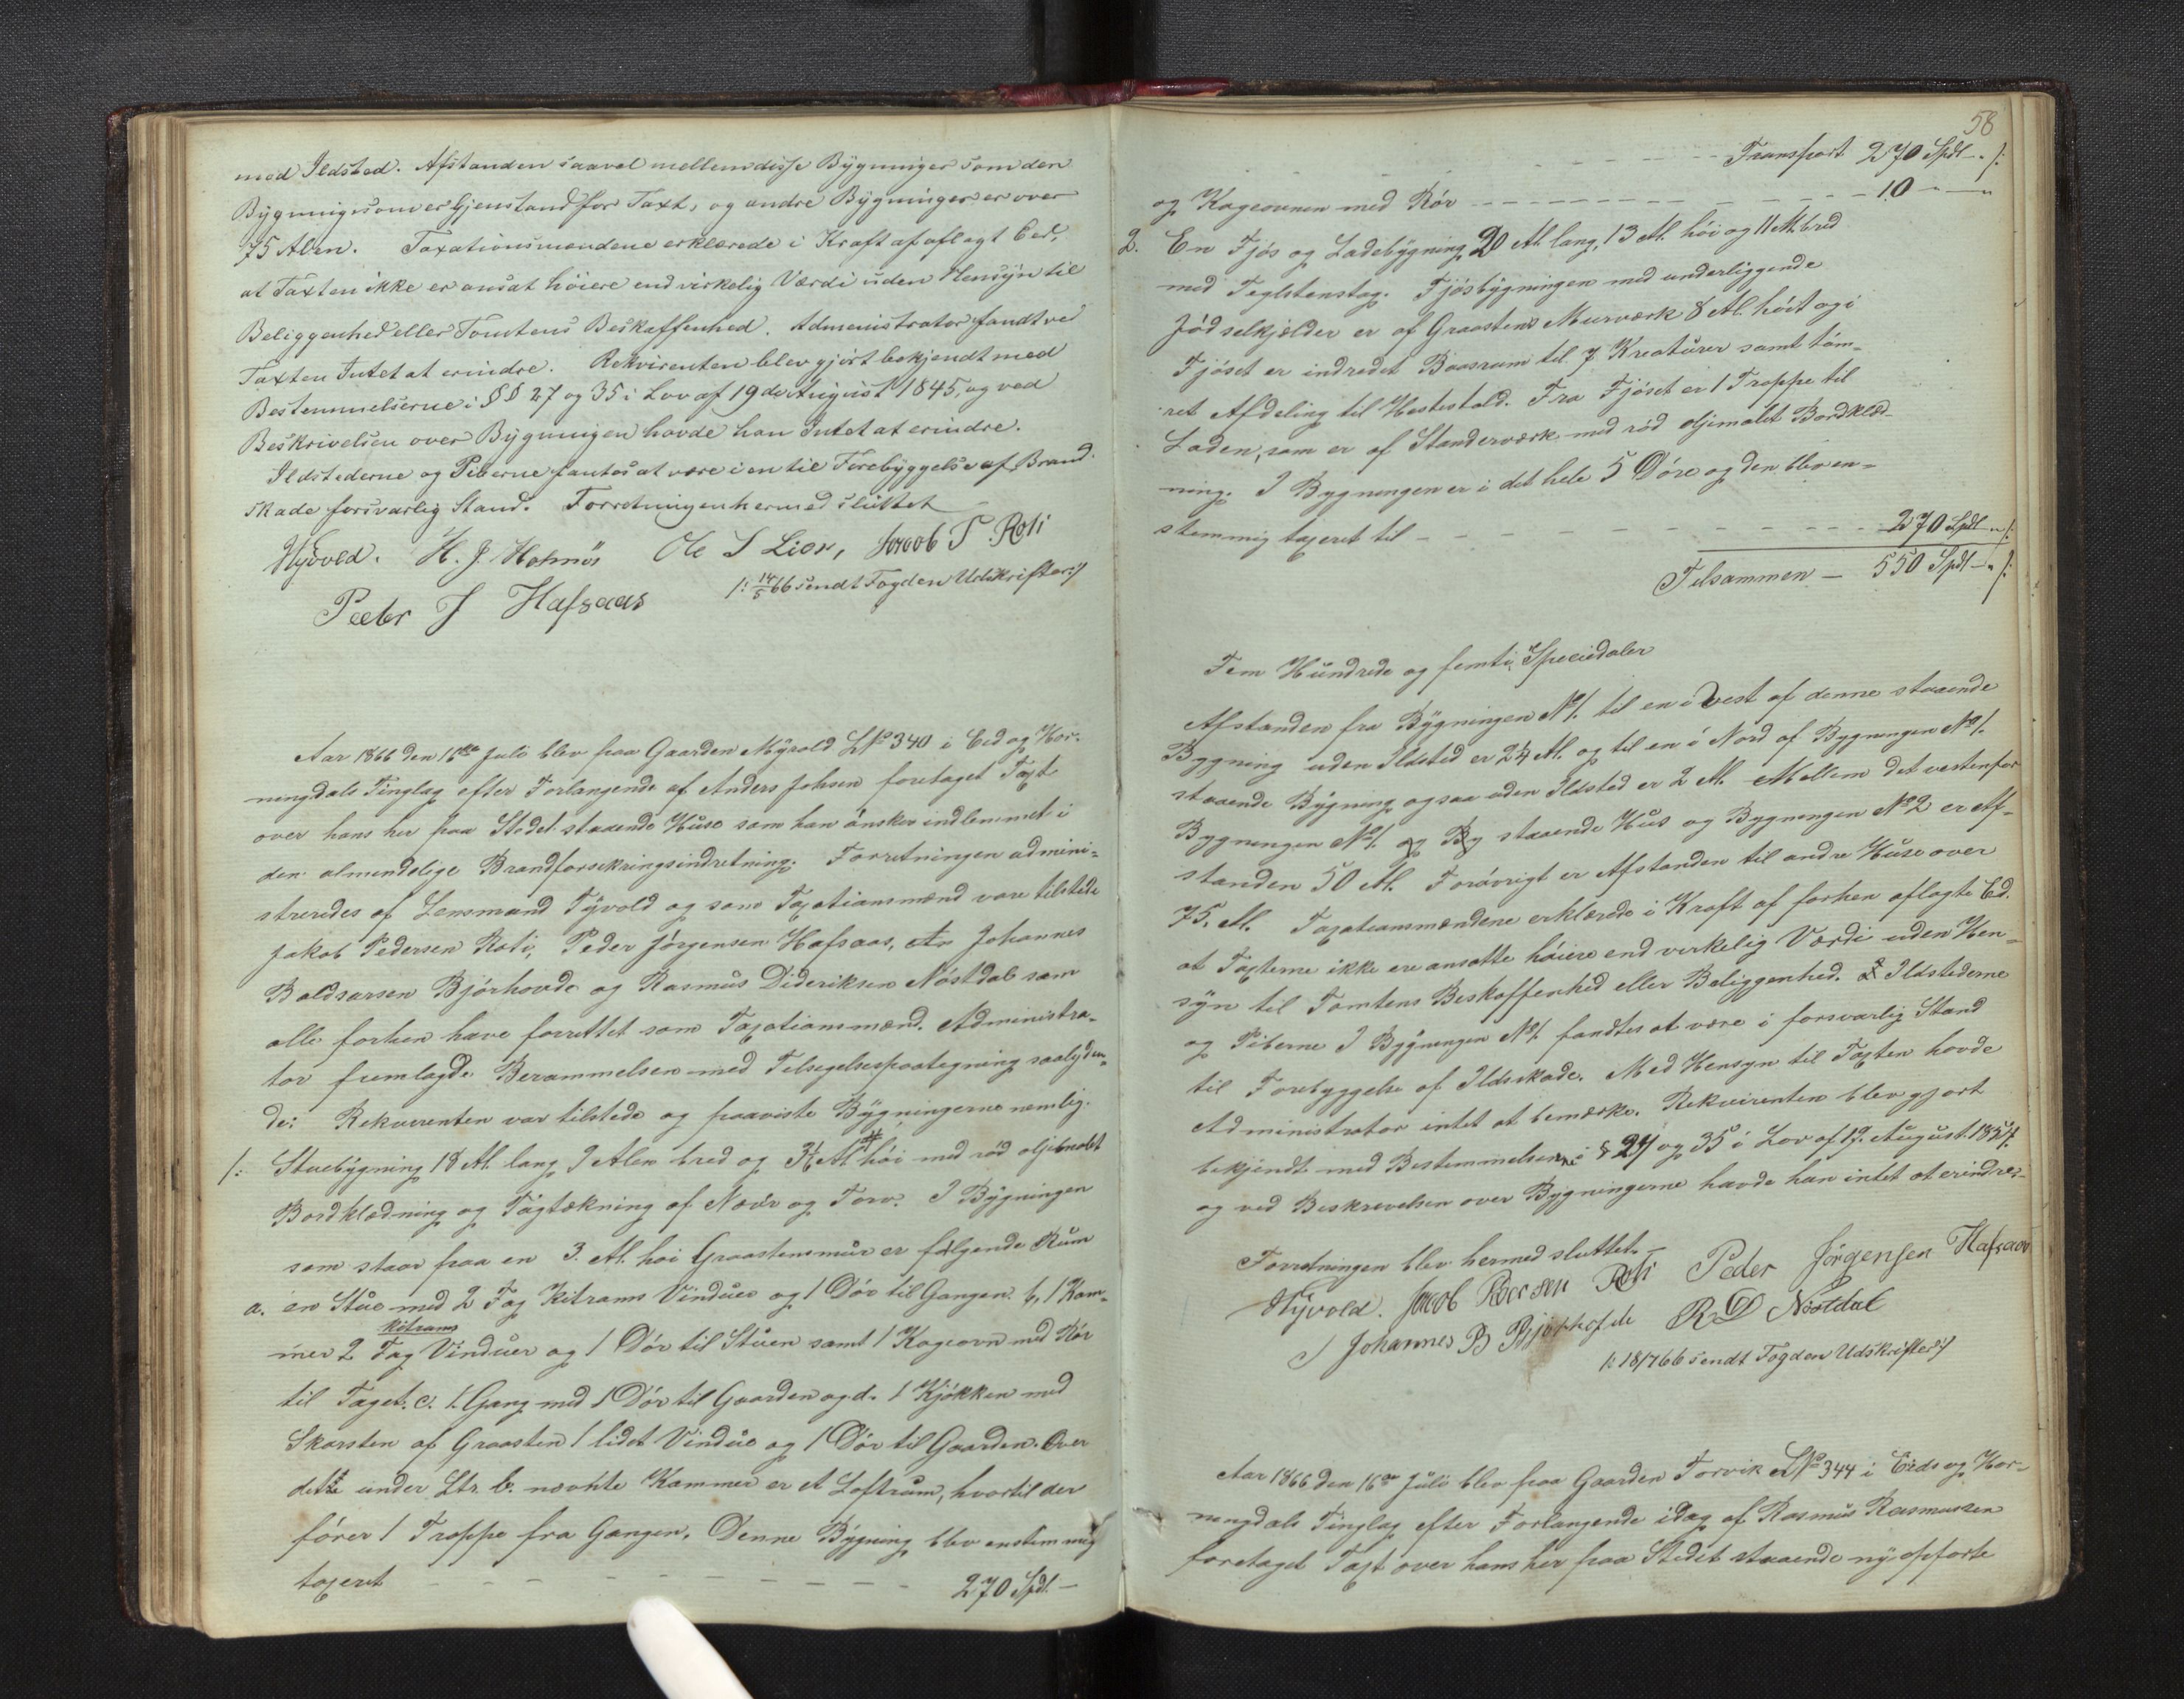 med Ildsted. Afstanden saavel mellem disse Bygninger som den
Bygning som er Gjenstand for Taxt, og andre Bygninger er over
75 Alen. Taxationsmændene erklærede i Kraft af aflagt Ed,
at Taxten ikke er ansat höiere end virkelig Værdi uden Hensyn til
Beliggenhed eller Tomtens Beskaffenhed. Administrator fandt ved
Taxten Intet at erindre. Rekvirenten blev gjört bekjendt med
Bestemmelserne i §§ 27 og 35 i Lov af 19de August 1845, og ved
Beskrivelsen over Bygningen havde han Intet at erindre.
Ildstederne og Piberne fantes at være i en til Forebyggelse af Brand-
skade forsvarlig Stand. Forretningen hermed sluttet
Hÿvold. H. J. Holmöi Ole S Lien, Jacob P. Roti
Peeter J Hafsaas /: 14/5 66 sendt Fogden Udskrifter :/
Aar 1866 den 16de Juli blev paa Gaarden Myrold LNo 340 i Eid og Hor-
ningdals Tinglag efter Forlangende af Anders Johsen foretaget Taxt
over hans her paa Stedet staaende Huse som han önsker indlemmet i
den almendelige Brandforsikringsindretning. Forretningen admini-
streredes af Lensmand Hÿvold og som Taxationsmænd vare tilstede
Jakob Pedersen Roti, Peder Jörgensen Hafsaas, Johannes
Baldsarsen Bjórhovde og Rasmus Dideriksen Nóstdal som
alle forhen have forrettet som Taxationsmænd. Administra-
tor fremlagde Berammelsen med Tilsigelsespaategning saalyden-
de: Rekvirenten var tilstede og paaviste Bygningerne nemlig.
1: Stuebygning 18 Al. lang 9 Alen bred og 3½ Al hói med ród oljemalet
Bordklædning og Tagtækning af Nævr og Torv. I Bygningen
som staar paa en 3. Al. hói Graastensmur er fólgende Rum
a. en Stue med 2 Fag Kitrams Vinduer og 1 Dór til Gangen. b, 1 Kam-
kitrams
mer 2 Fag Vinduer og 1 Dór til Stuen samt 1 Kogeovn med Rór
til Taget. c. 1. Gang med 1 Dór til Gaarden og d. 1 Kjókken med
Skorsten af Graasten 1 lidet Vindue og 1 Dór til Gaarden. Over
dette under Ltr. b. nævnte Kammer er et Loftrum, hvortil der
fórer 1 Trappe fra Gangen. Denne Bygning blev enstemmig
taxeret - - - - - - - - - 270 Spdl. -
58
- - - - - Transport 270 Spdl - " /:
og Kogeovnen med Rór - - - - - - - - - - 10 - " - "
2. En Fjós og Ladebygning 20 Al. lang, 13 Al. hói og 11 Al. bred
med Teglstenstag. Fjósbygningen med underliggende
Jódselkjelder er af Graastens Murværk 8 Al. hóit og i
Fjóset er indredet Baasrum til 7 Kreaturer samt tóm-
ret Afdeling til Hestestald. Fra Fjóset er 1 Trappe til
Laden, som er af Standerværk med ród oljemalet Bordklæd-
ning. I Bygningen er i det hele 5 Dóre og den blev en-
stemmig taxeret til - - - - - - - - - 270 Spdl - " /:
Tilsammen - 550 Spdl - " /:
Fem Hundrede og femti Speciedaler
Afstanden fra Bygningen No 1. til en i Vest af denne staaende
Bygning uden Ildsted er 2½ Al. og til en i Nord af Bygningen No 1.
staaende Bygning ogsaa uden Ildsted er 2 Al. Mellem det vestenfor
Bygningen No 1. og By staaende Hus og Bygningen No 2 er Af-
standen 50 Al. Foróvrigt er Afstanden til andre Huse over
75. Al. Taxationsmændene erklærede i Kraft af forhen aflagte Ed.
at Taxterne ikke ere ansatte hóiere end virkelig Værdi uden Hen-
syn til Tomtens Beskaffenhed eller Beliggenhed. Ildstederne
og Piberne I Bygningen No 1. fandtes at være i forsvarlig Stand
til Forebyggelse af Ildskade. Med Hensyn til Taxten havde
Administrator intet at bemærke. Rekvirenten blev gjort
bekjendt med Bestemmelserne i § 27 og 35 i Lov af 19. August. 1845.
og ved Beskrivelsen over Bygningerne havde han intet at erindre.-
Forretningen blev hermed sluttet. -
Hÿvold. Jacob Peersen Roti Peder Jörgensen Hafsaas
Johannes B Bjórhofde R D Nöstdal
/: 18/7 66 sendt Fogden Udskrifter :/
Aar 1866 den 16de Juli blev paa Gaarden Torvik LNo 344 i Eids og Hor-
ningdals Tinglag efter Forlangende idag af Rasmus Rasmussen
foretaget Taxt over hans her paa Stedet staaende ny opforte